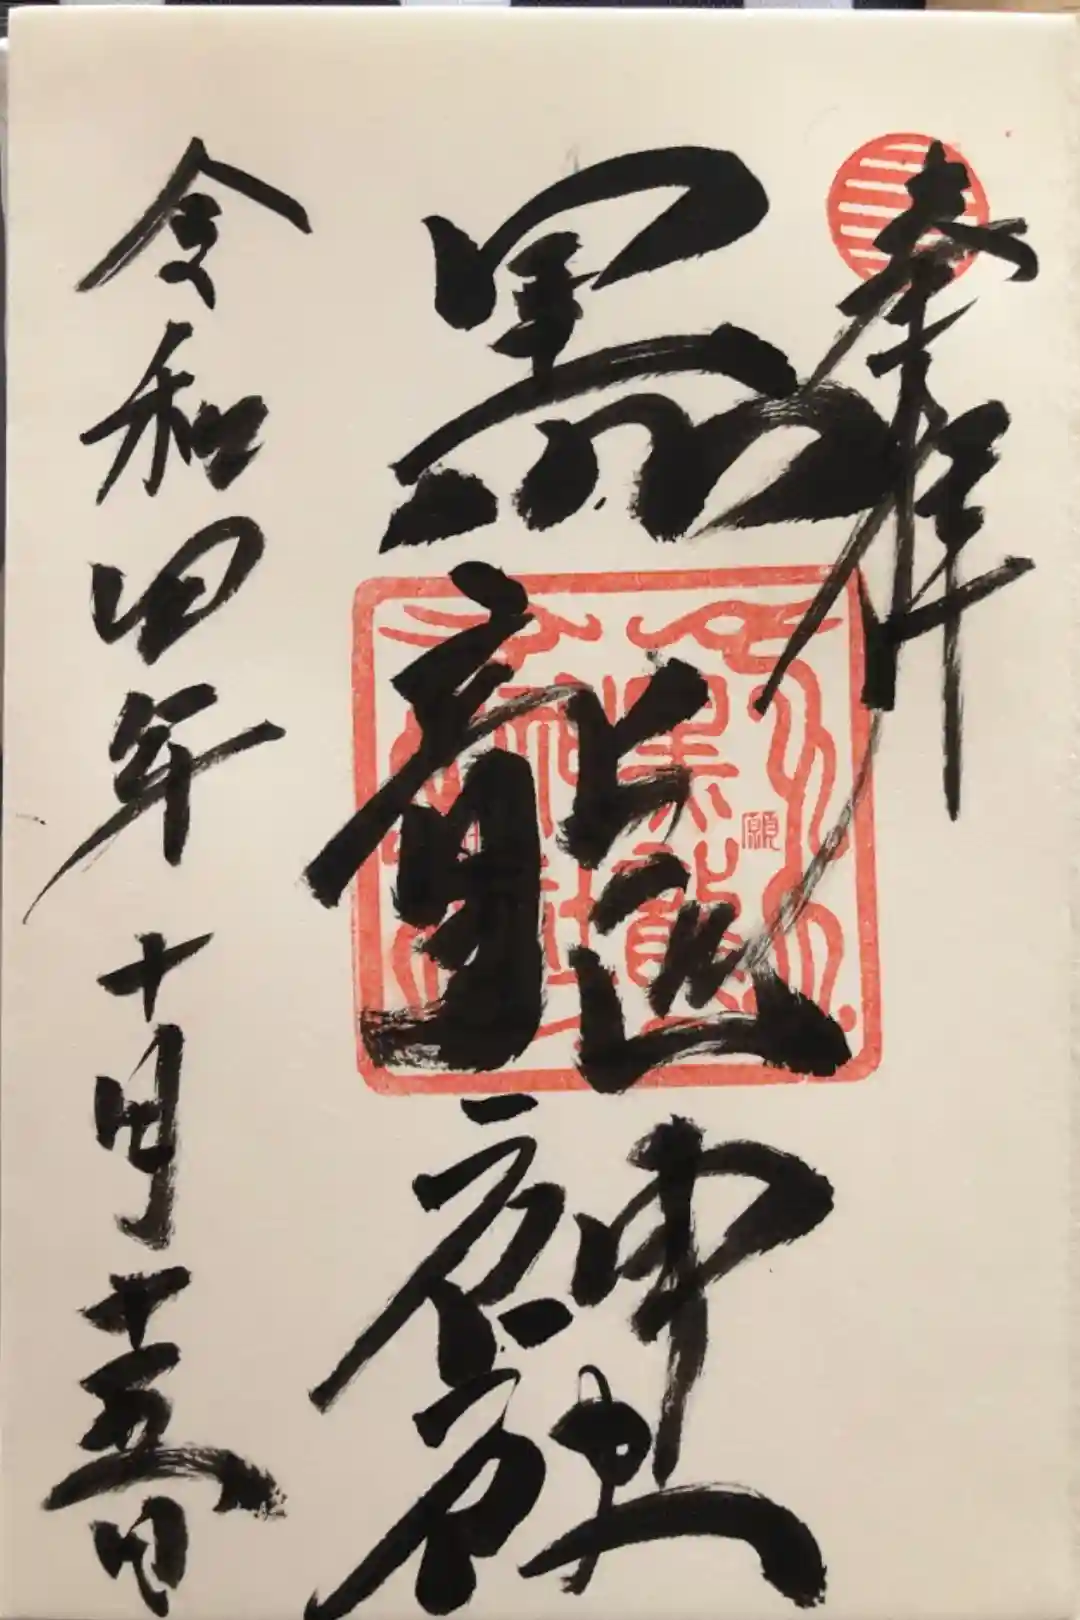 奉拝
黒龍神社
黒龍神社
願
令和四年十月十五日